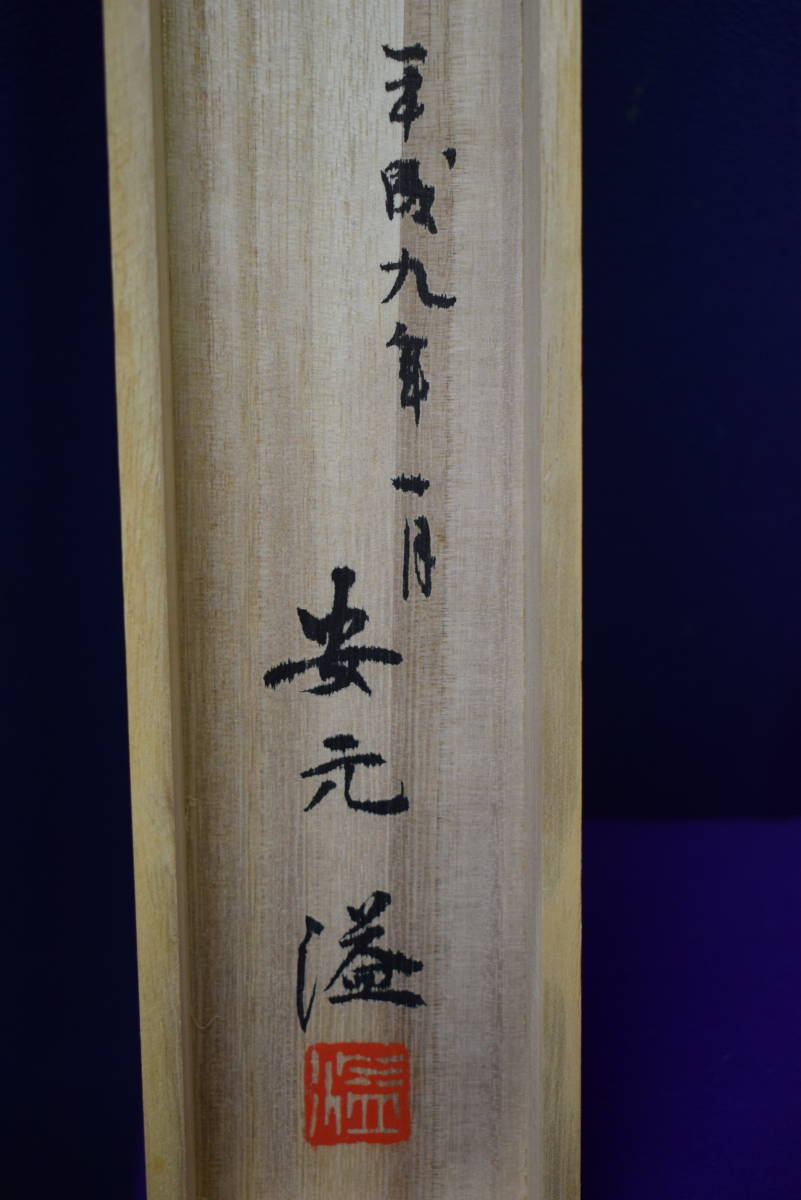 平成九年一月
安元溢
溢